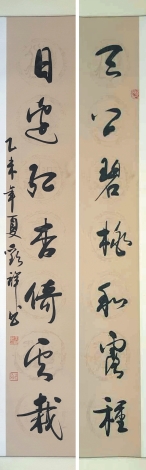 天上碧桃和露种
日边红杏倚云栽
乙未年夏
祥书